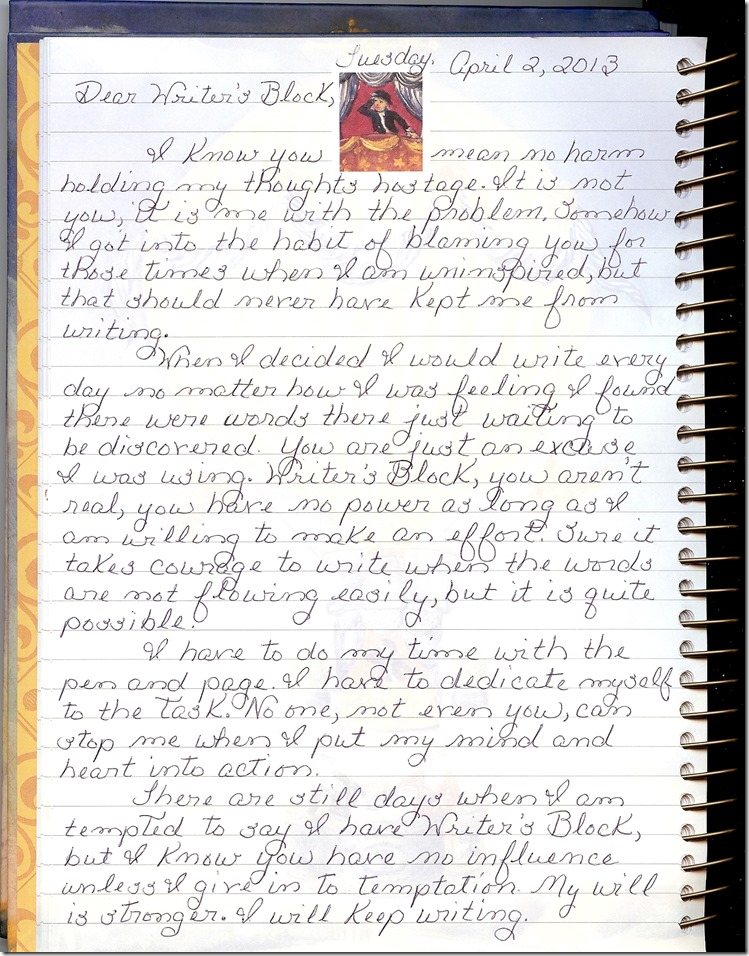 Tuesday, April 2, 2013
Dear Writer's Block,
I know you mean no harm
holding my thoughts hostage. It is not
you, it is me with the problem. Somehow
I got into the habit of blaming you for
those times when I am uninspired, but
that should never have kept me from
writing.
When I decided I would write every
day no matter how I was feeling I found
there were words there just waiting to
be discovered. You are just an excuse
I was using. Writer's Block, you aren't
real, you have no power as long as I
am willing to make an effort. Sure it
takes courage to write when the words
are not flowing easily, but it is quite
possible.
I have to do my time with the
pen and page. I have to dedicate myself
to the task. No one, not even you, can
stop me when I put my mind and
heart into action.
There are still days when I am
tempted to say I have Writer's Block,
but I know you have no influence
unless I give in to temptation. My will
is stronger. I will keep writing.